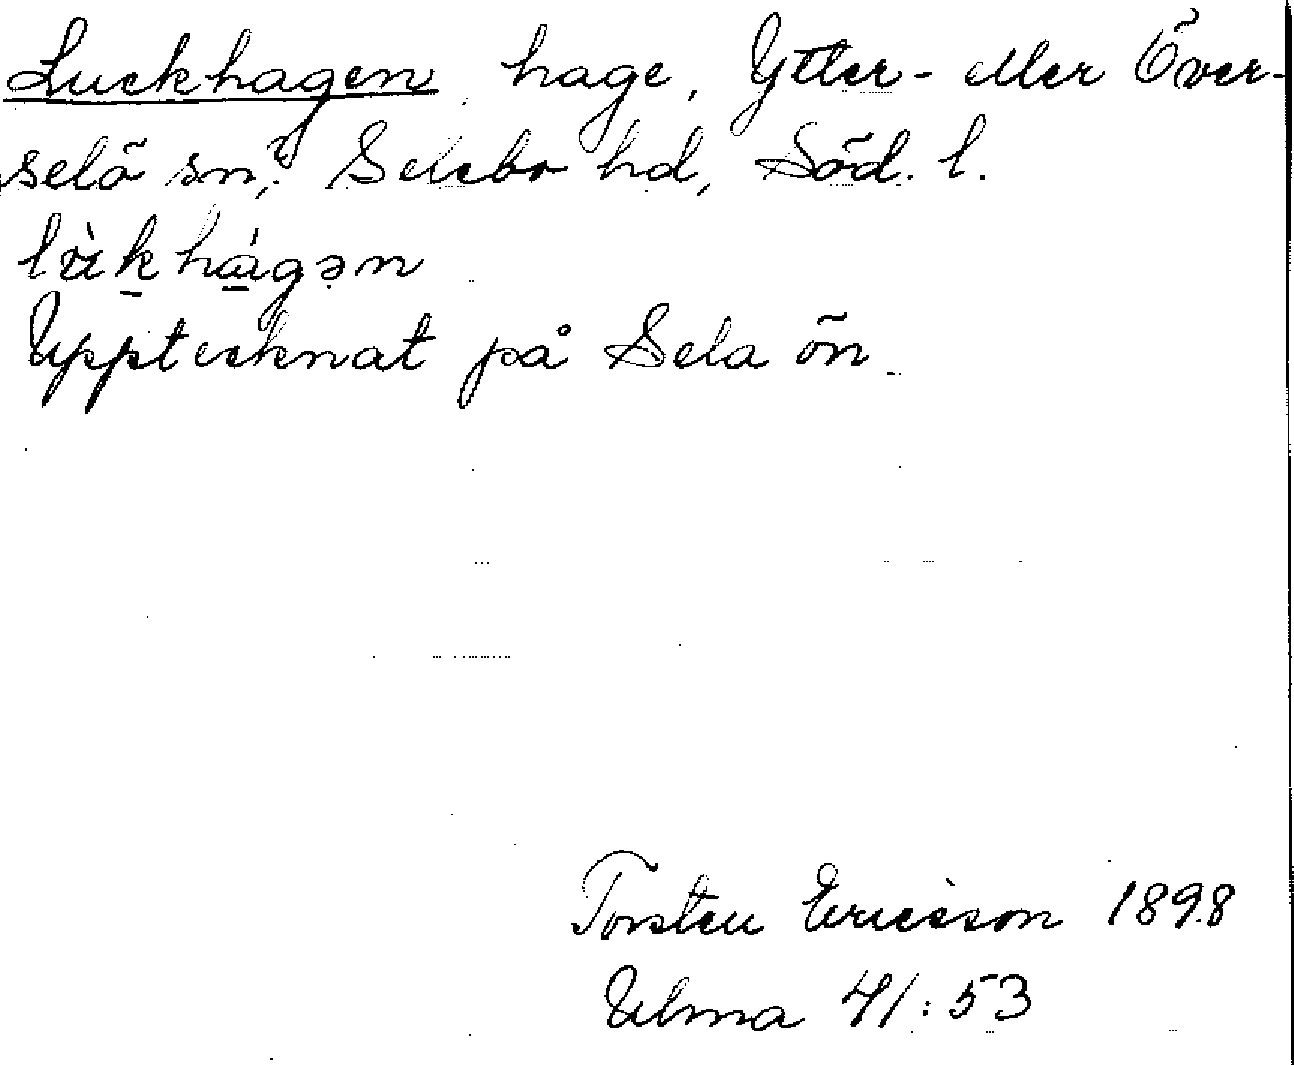 Luckhagen, hage, Ytter- eller Över-
selö sn,? Selebo hd, Söd. l.
lùkhágən
Upptecknat på Sela ön.
Torsten Ericsson 1898
Ulma 41:53